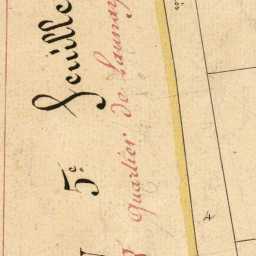 5e Feuille
Quartier de Launay